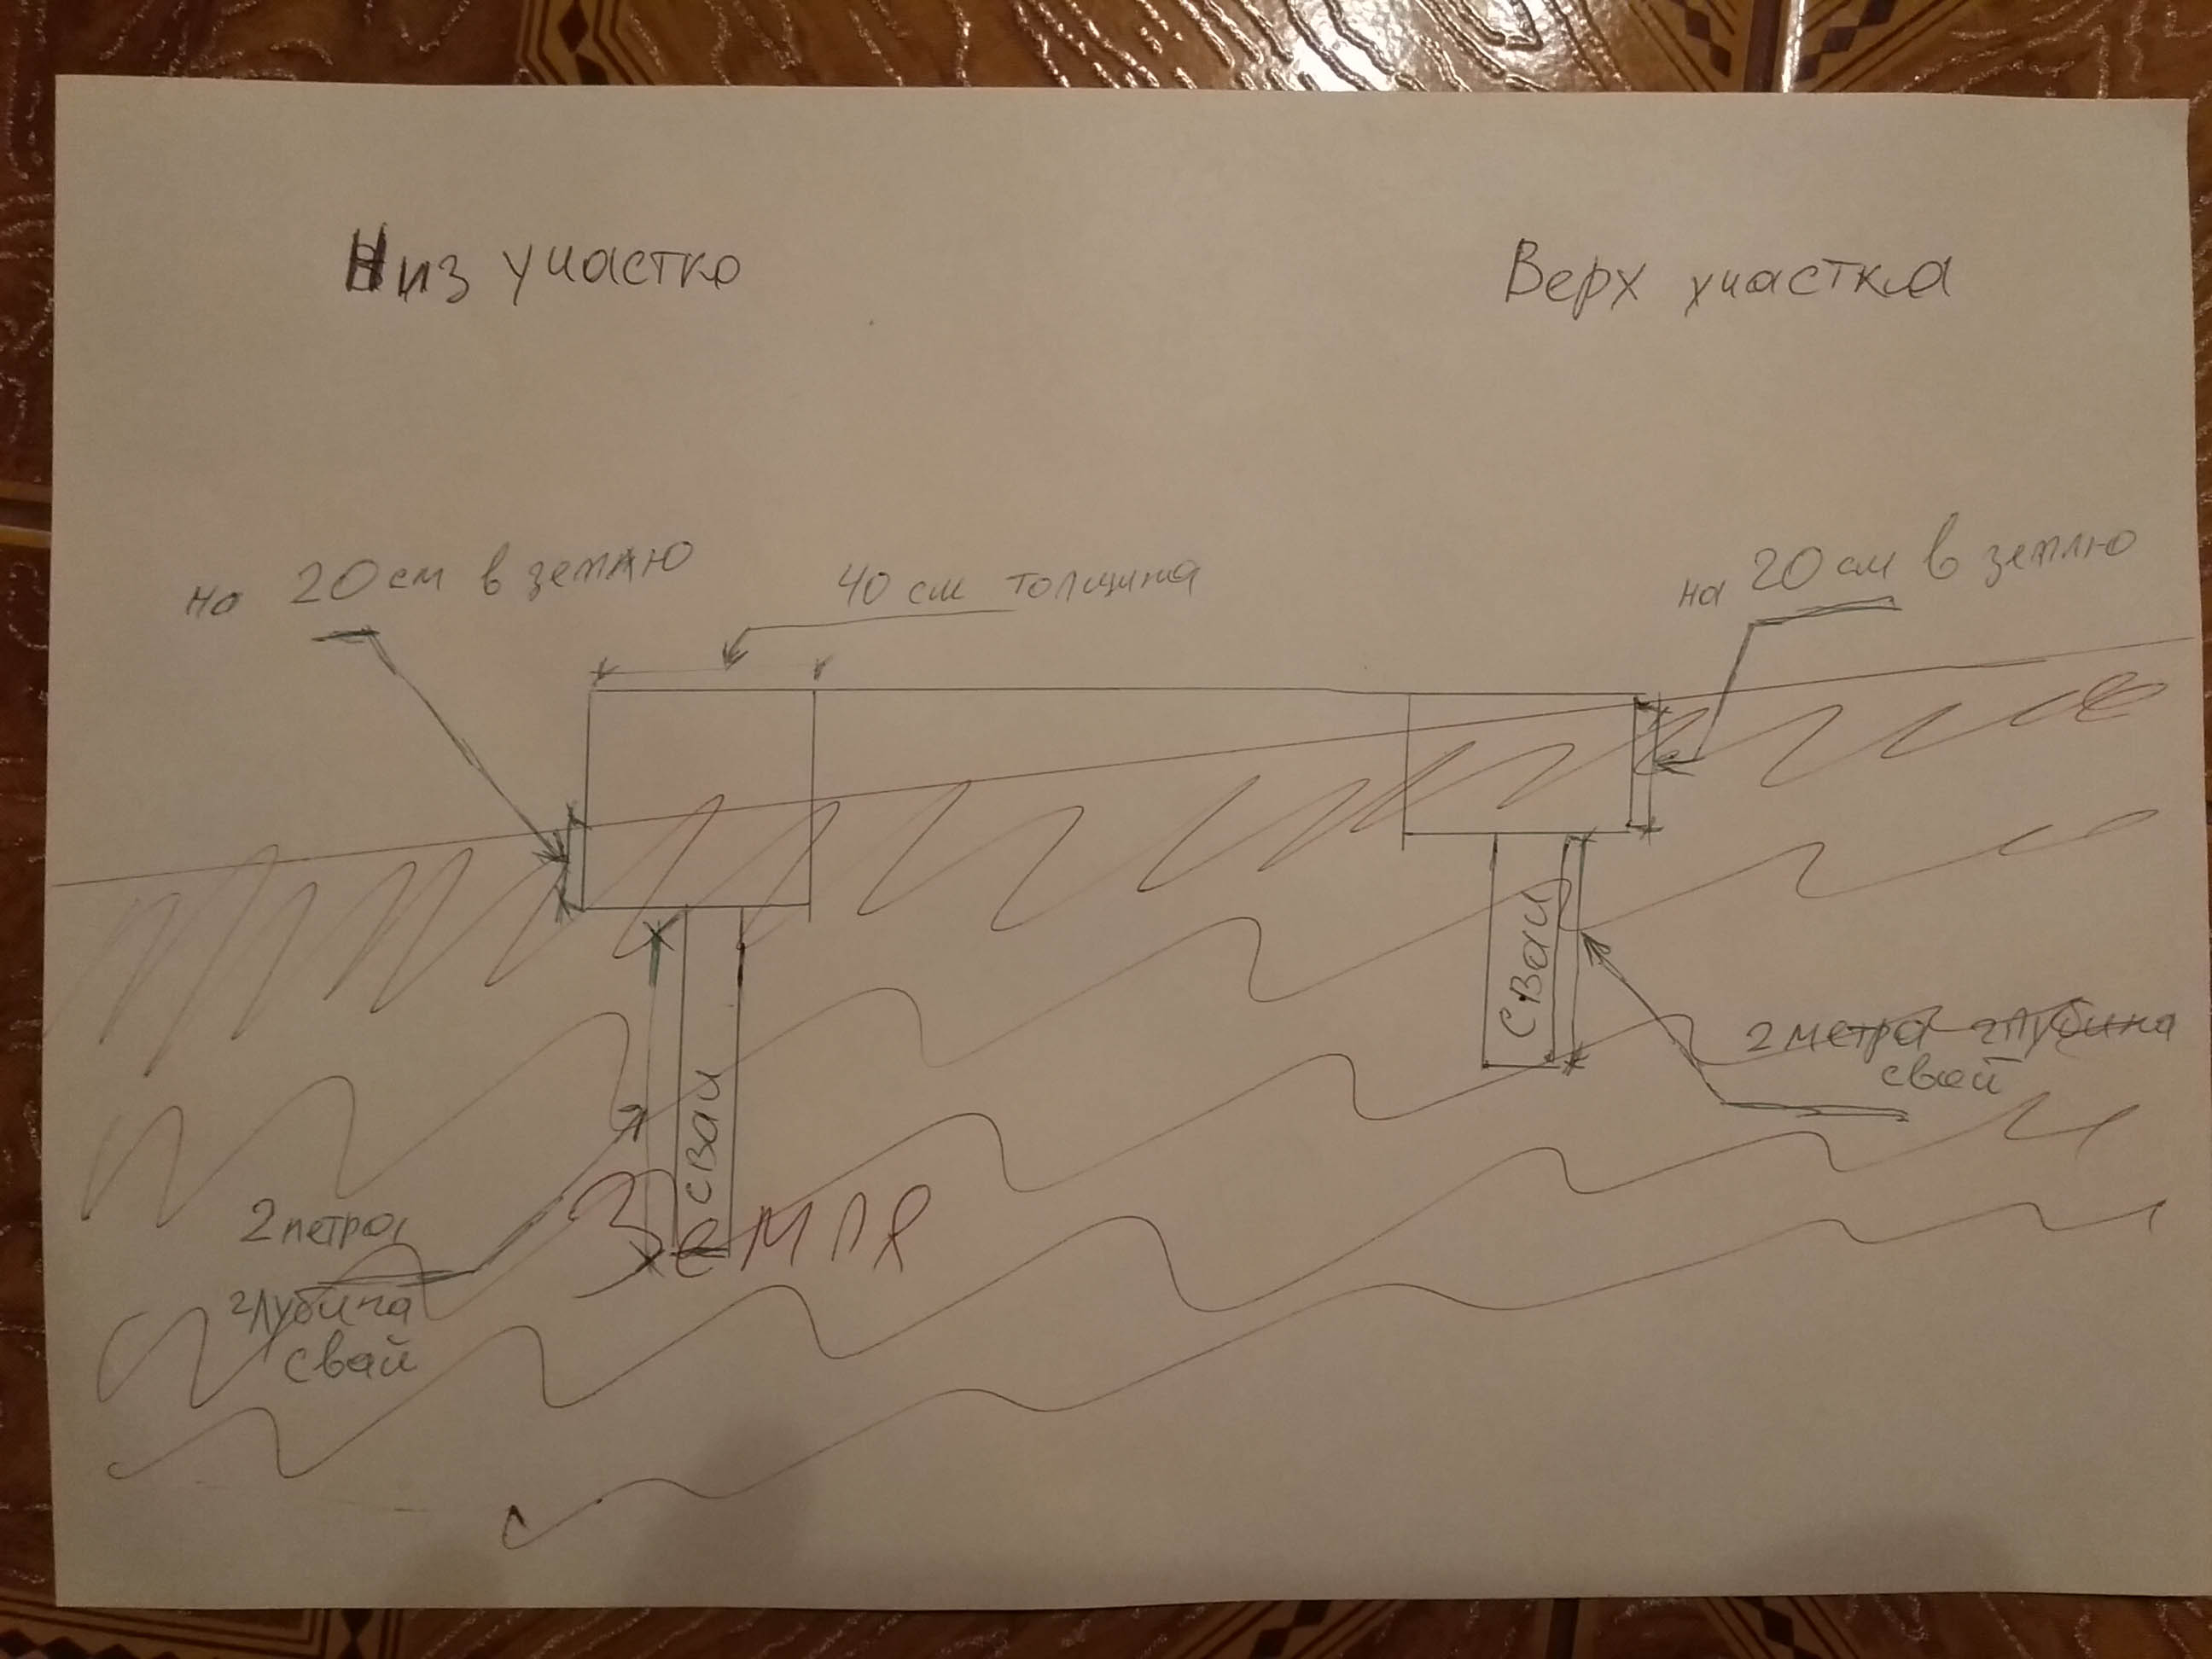 Низ участка
Верх участка
на 20 см в землю
40 см толщина
на 20 см в землю
сваи
сваи
2 метра глубина
свай
2 метра
глубина
свай
Земля